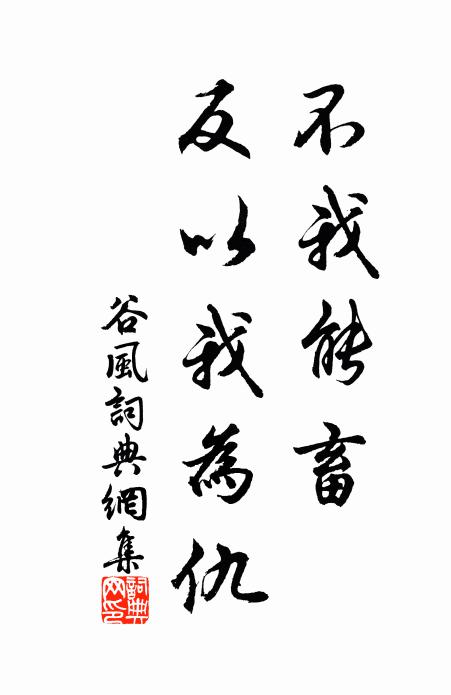 不我能畜
反以我為仇
谷風詞典網集
詞典
网印